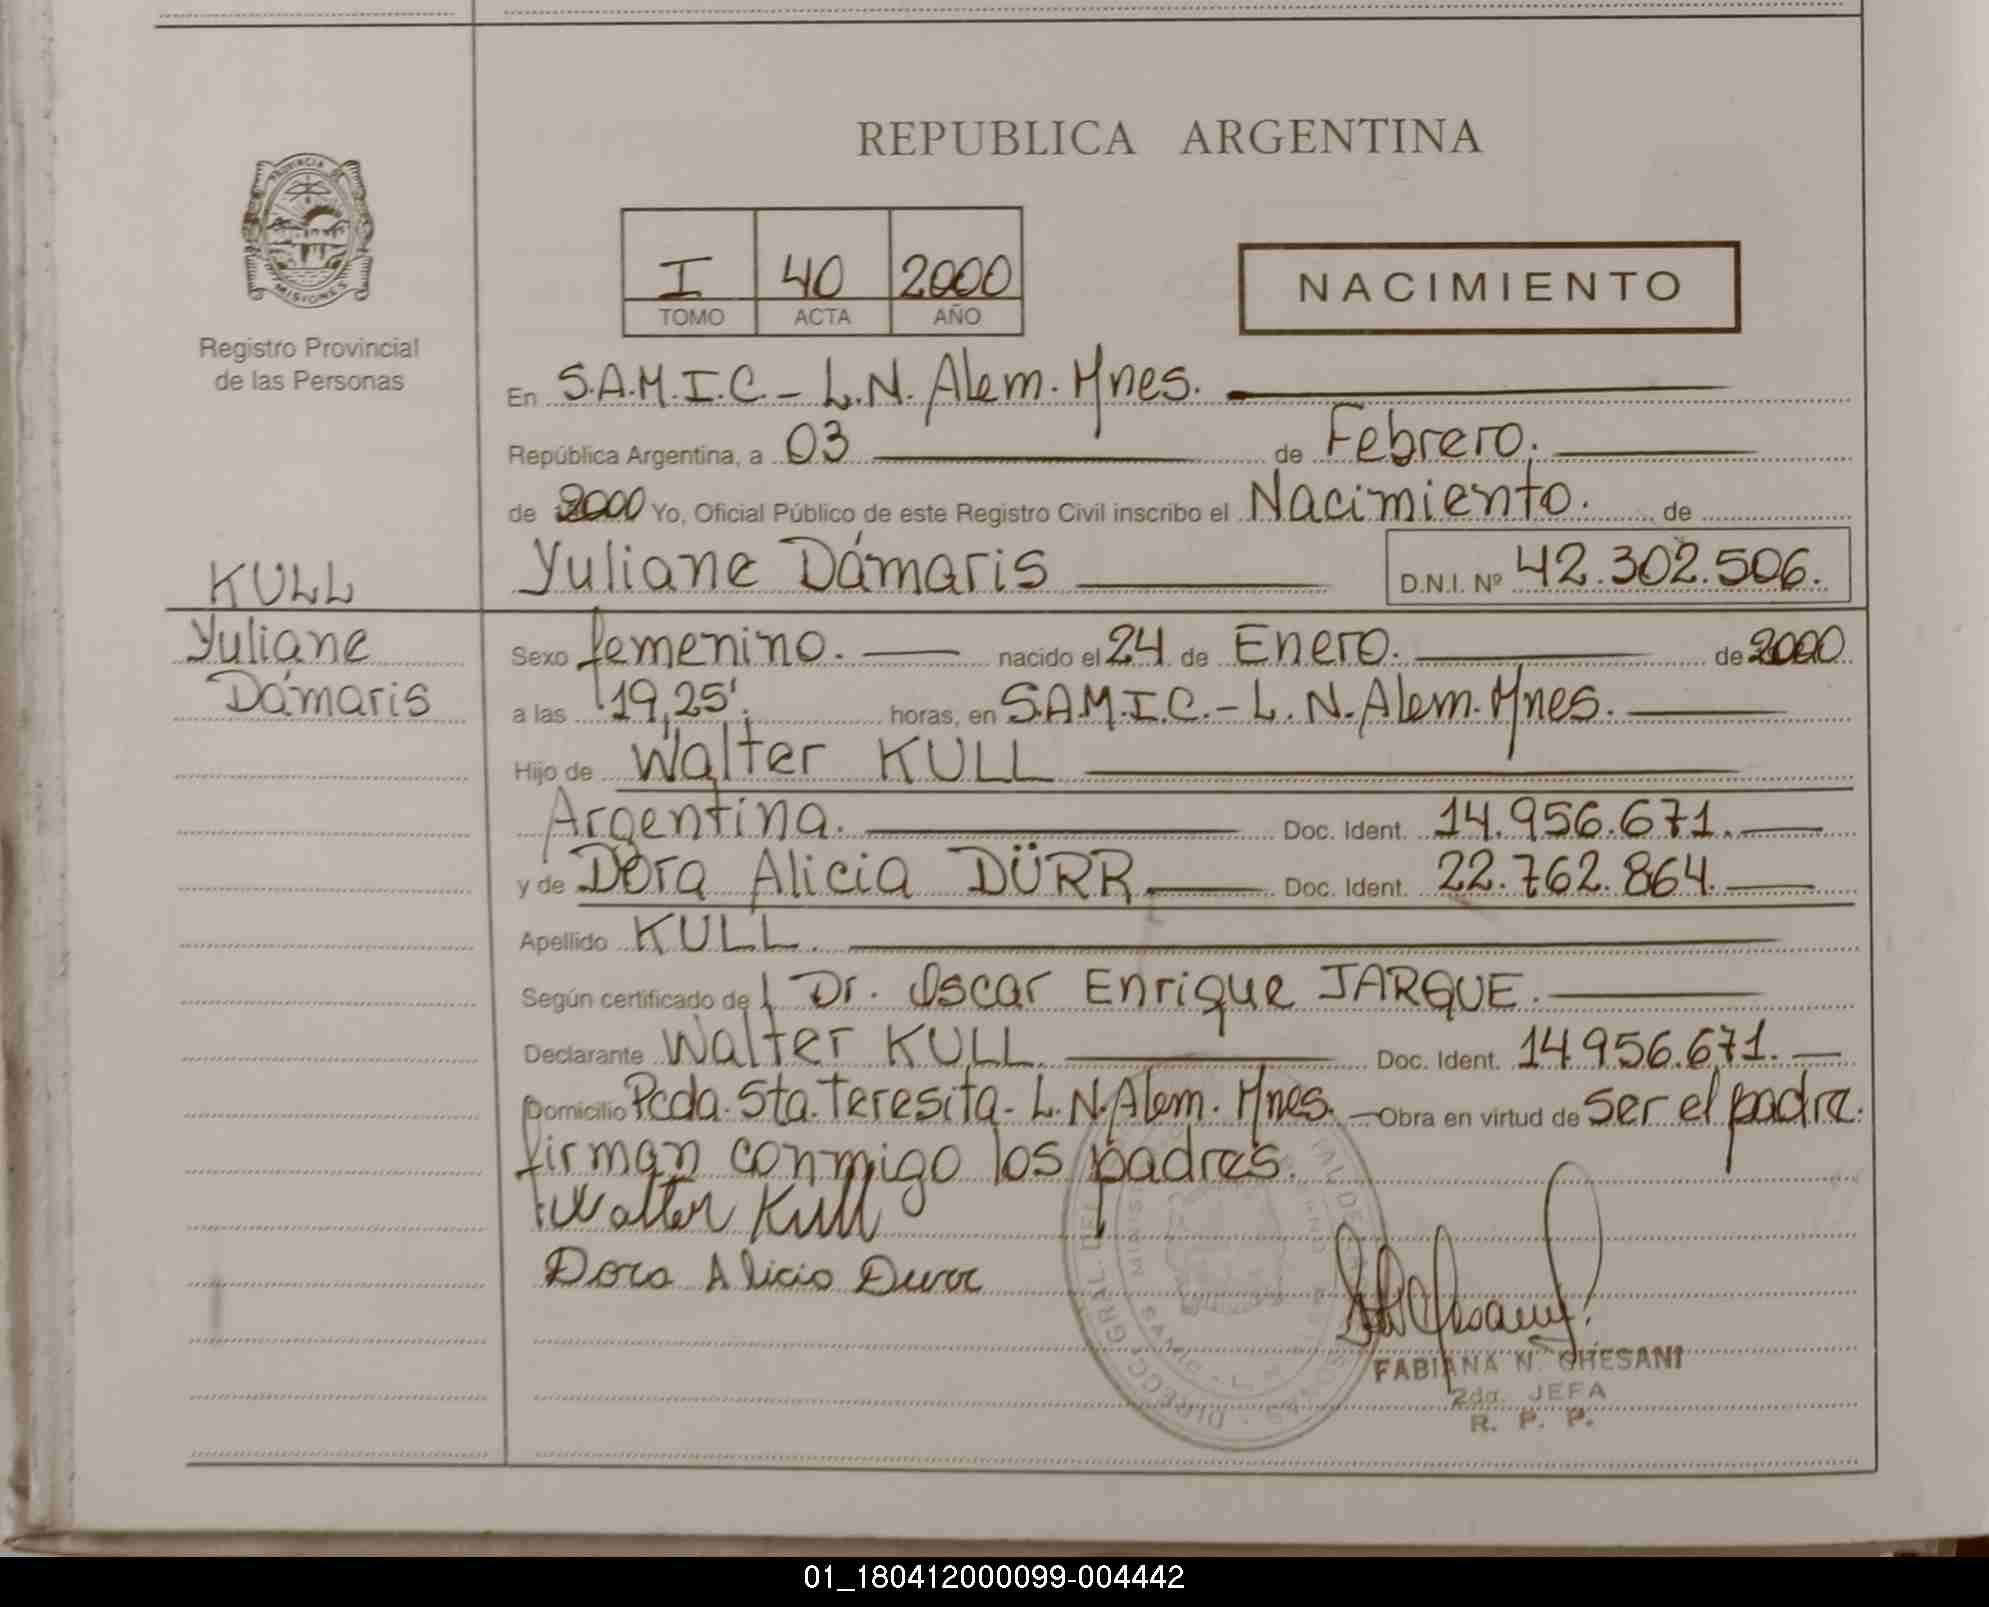 REPUBLICA ARGENTINA
PROVINCIA DE MISIONES
Registro Provincial
de las Personas
I 40 2000
TOMO ACTA AÑO
NACIMIENTO
En S.A.M.I.C - L.N. Alem. Mnes.
República Argentina, a 03 de Febrero.
de 2000 Yo, Oficial Público de este Registro Civil inscribo el Nacimiento. de
KULL
Yuliane Dámaris D.N.I. Nº 42.302.506.
Yuliane
Dámaris
Sexo femenino. nacido el 24 de Enero. de 2000
a las 19,25'. horas, en S.A.M.I.C. - L. N. Alem. Mnes.
Hijo de Walter KULL
Argentina. Doc. Ident. 14.956.671.
y de Dora Alicia DÜRR Doc. Ident. 22.762.864.
Apellido KULL.
Según certificado de Dr. Oscar Enrique JARQUE.
Declarante Walter KULL. Doc. Ident. 14.956.671.
Domicilio Pcda. Sta. Teresita - L.N. Alem. Mnes. Obra en virtud de ser el padre.
firman conmigo los padres.
Walter Kull
Dora Alicia Durr
FABIANA N. GHESANI
2da. JEFA
R. P. P.
01_180412000099-004442